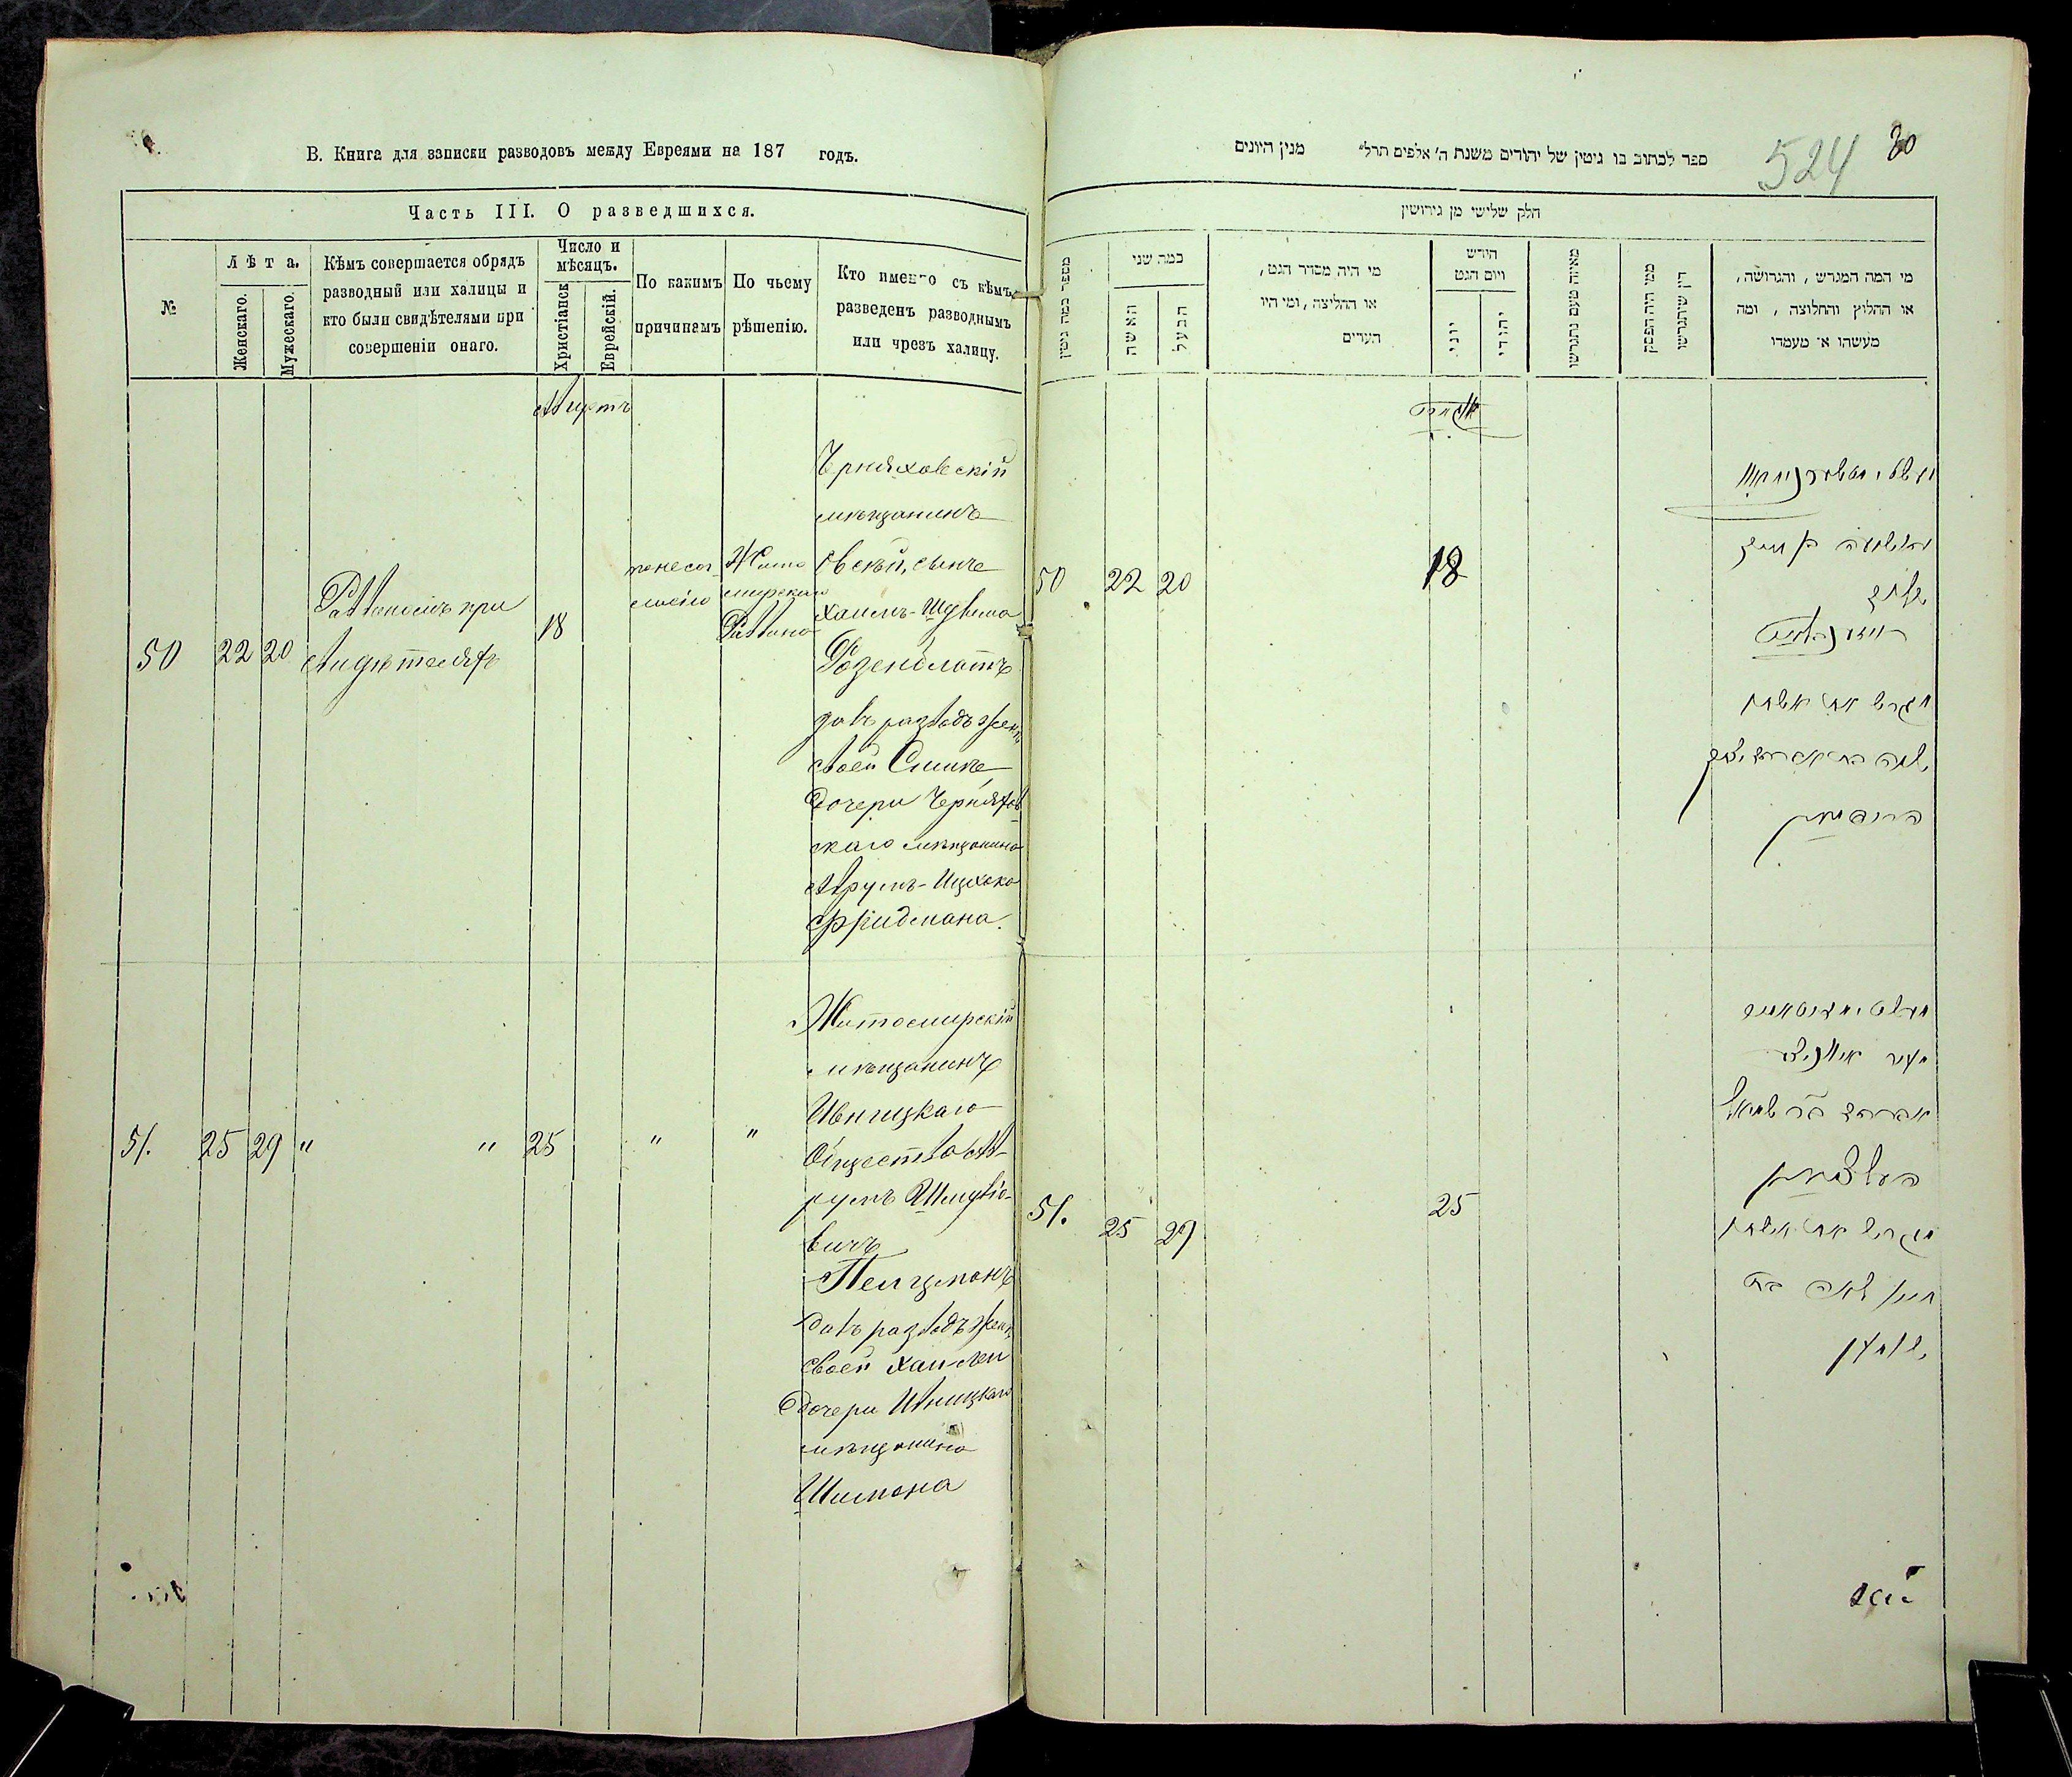 В. Книга для записки разводовъ между Евреями на 187 годъ.
Часть III. О разведшихся.
№
Лѣта.
Женскаго.
Мужескаго.
Кѣмъ совершается обрядъ
разводный или халицы и
кто были свидѣтелями при
совершеніи онаго.
Число и
мѣсяцъ.
Христіанск
Еврейскій.
По какимъ
причинамъ
По чьему
рѣшенію.
Кто именно съ кѣмъ
разведенъ разводнымъ
или чрезъ халицу.
Августъ
50
22
20
Раввиномъ при
18
по несог-
ласію
Жито
мирскаго
Раввина
Черняховскій
мѣщанинъ
Хаимъ-
Розенблатъ
давъ разводъ женѣ
своей Симке
дочери Черняхов
скаго мѣщанина
Аврумъ-Ицхока
Фридмана.
51.
25
29
"
"
25
"
"
Житомирскій
мѣщанинъ
Ивницкаго
Общества Ав-
румъ Шмулiо-
вичъ
Пелцманъ
давъ разводъ женѣ
своей Хаи-Леи
дочери Ивницкаго
мѣщанина
Шимона
524
30
ספר לכתוב בו גיטין של יהודים משנת ה' אלפים תרל" מנין היונים
חלק שלישי מן גירושין
מספר כמה גיטין
כמה שני
האשה
הבעל
מי היה מסדר הגט,
או החליצה, ומי היו
העדים
חודש
ויום הגט
יוני
יהודי
מאיזה טעם נתגרשו
ממי היה הפסק
דין שיתגרשו
מי המה המגרש, והגרושה,
או החלוץ והחלוצה, ומה
מעשהו או מעמדו
אויגוסט
50
22
20
18
מגרש את אשתו
פרידמאן
51.
25
29
25
אברהם בר שמואל
פעלצמאן
מגרש את אשתו
חיה לאה בת
שמעון